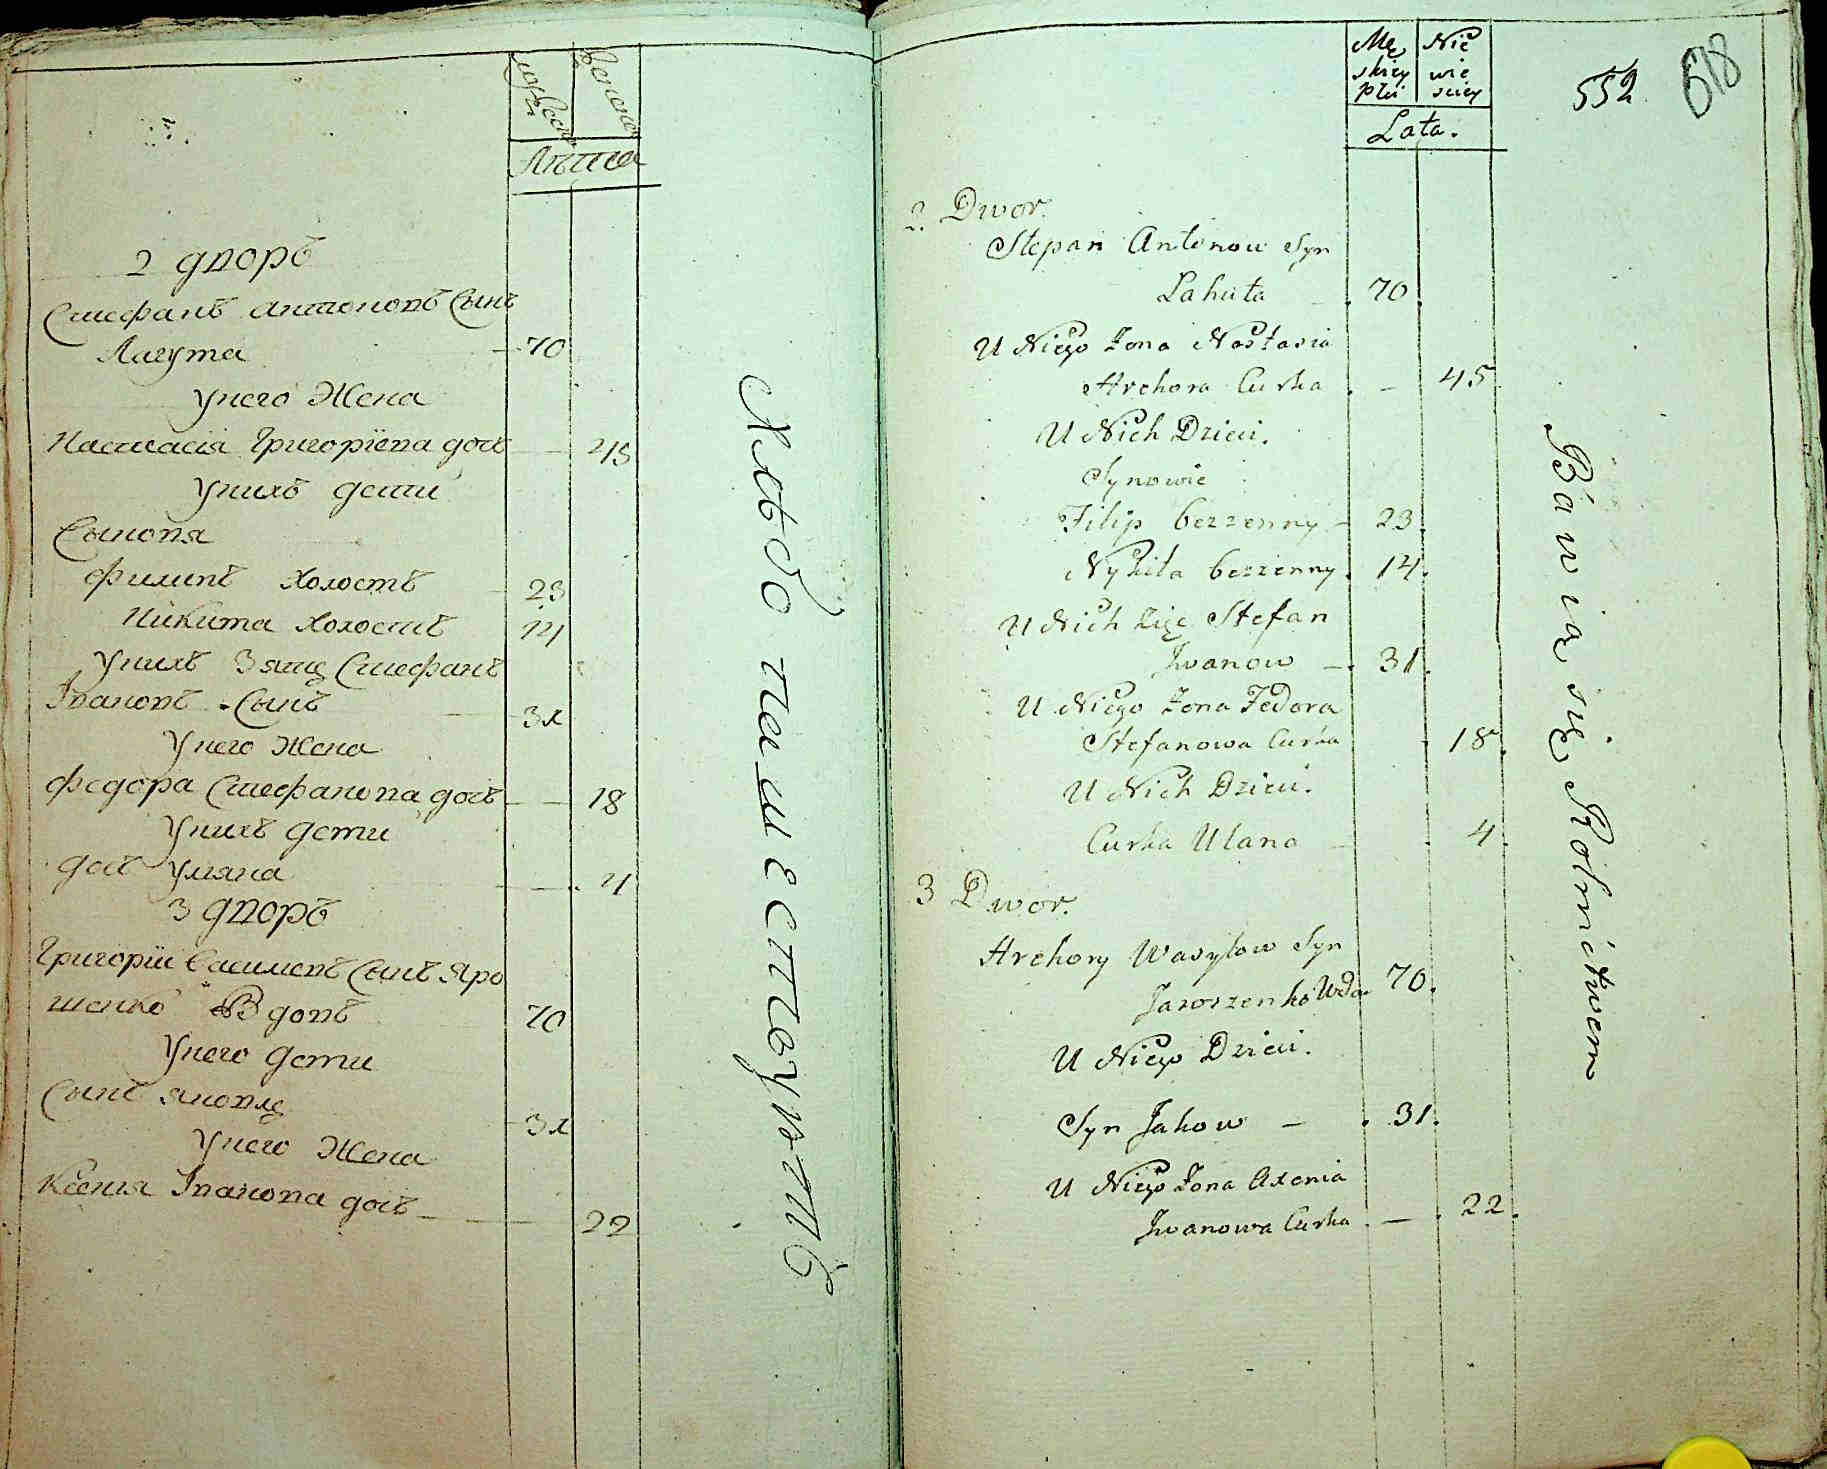 Лѣта
2 дворъ
Стефанъ антоновъ Сынъ
Лагута 70
Унего Жена
Настасія Григоріева дочь 45
Унихъ дети
Сыновя
Филипъ холостъ 23
Никита холостъ 14
Унихъ Зять Стефанъ
Івановъ Сынъ 31
Унего Жена
Федора Стефанова дочь 18
Унихъ дети
дочь Уляна 4
3 дворъ
Григорій Василевъ Сынъ Яро
шенко Вдовъ 70
Унего дети
Сынъ яковъ 31
Унего Жена
Ксенія Іванова дочь 22
Хлѣбопашествуютъ
Mę
skiey
płci
Nie
wie
sciey
Lata.
552
618
2. Dwor.
Stepan Antonow Syn
Lahuta 70
U Niego Zona Nastasia
Hrehora Curka 45
U Nich Dzieci.
Synowie
Filip bezzenny 23
Nykita bezzenny 14
U Nich Zięc Stefan
Jwanow 31
U Niego Zona Fedora
Stefanowa Curka 18
U Nich Dzieci.
Curka Ulana 4
3 Dwor.
Hrehory Wasylow Syn
Jaroszenko Wdo. 70.
U Niego Dzieci.
Syn Jakow 31.
U Niego Zona Axenia
Jwanowa Curka 22.
Bawią się Rolnictwem